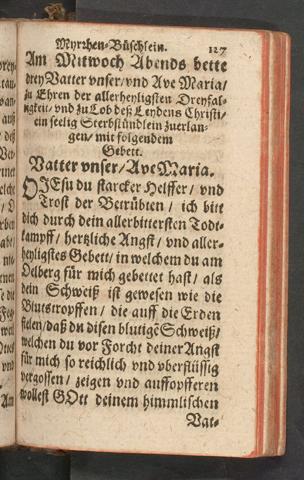 Myrrhen-Büschlein. 127
Am Mittwoch Abends bette
drey Vatter unser / und Ave Maria /
zu Ehren der allerheyligsten Dreyfal-
tigkeit / und zu Lob deß Leydens Christi /
ein seelig Sterbstündlein zuerlan-
gen / mit folgendem
Gebett.
Vatter unser / Ave Maria.
O JEsu du starcker Helffer / und
Trost der Betrübten / ich bitt
dich durch dein allerbittersten Todt-
kampff / hertzliche Angst / und aller-
heyligstes Gebett / in welchem du am
Oelberg für mich gebettet hast / als
dein Schweiß ist gewesen wie die
Blutstropffen / die auff die Erden
fielen / daß du disen blutigẽ Schweiß /
welchen du vor Forcht deiner Angst
für mich so reichlich und überflüssig
vergossen / zeigen und auffopfferen
wollest GOtt deinem himmlischen
Vat-